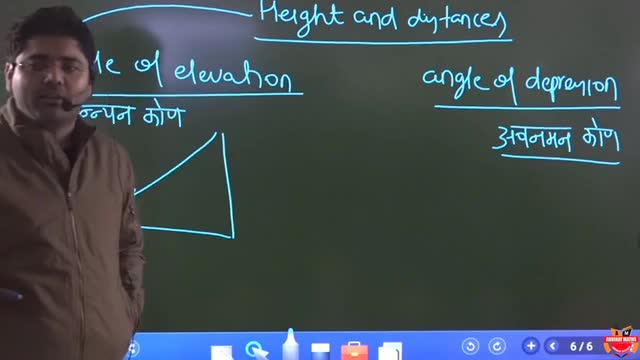 Height and distances
of elevation
angle of depression
कोण
अवनमन कोण
6/6